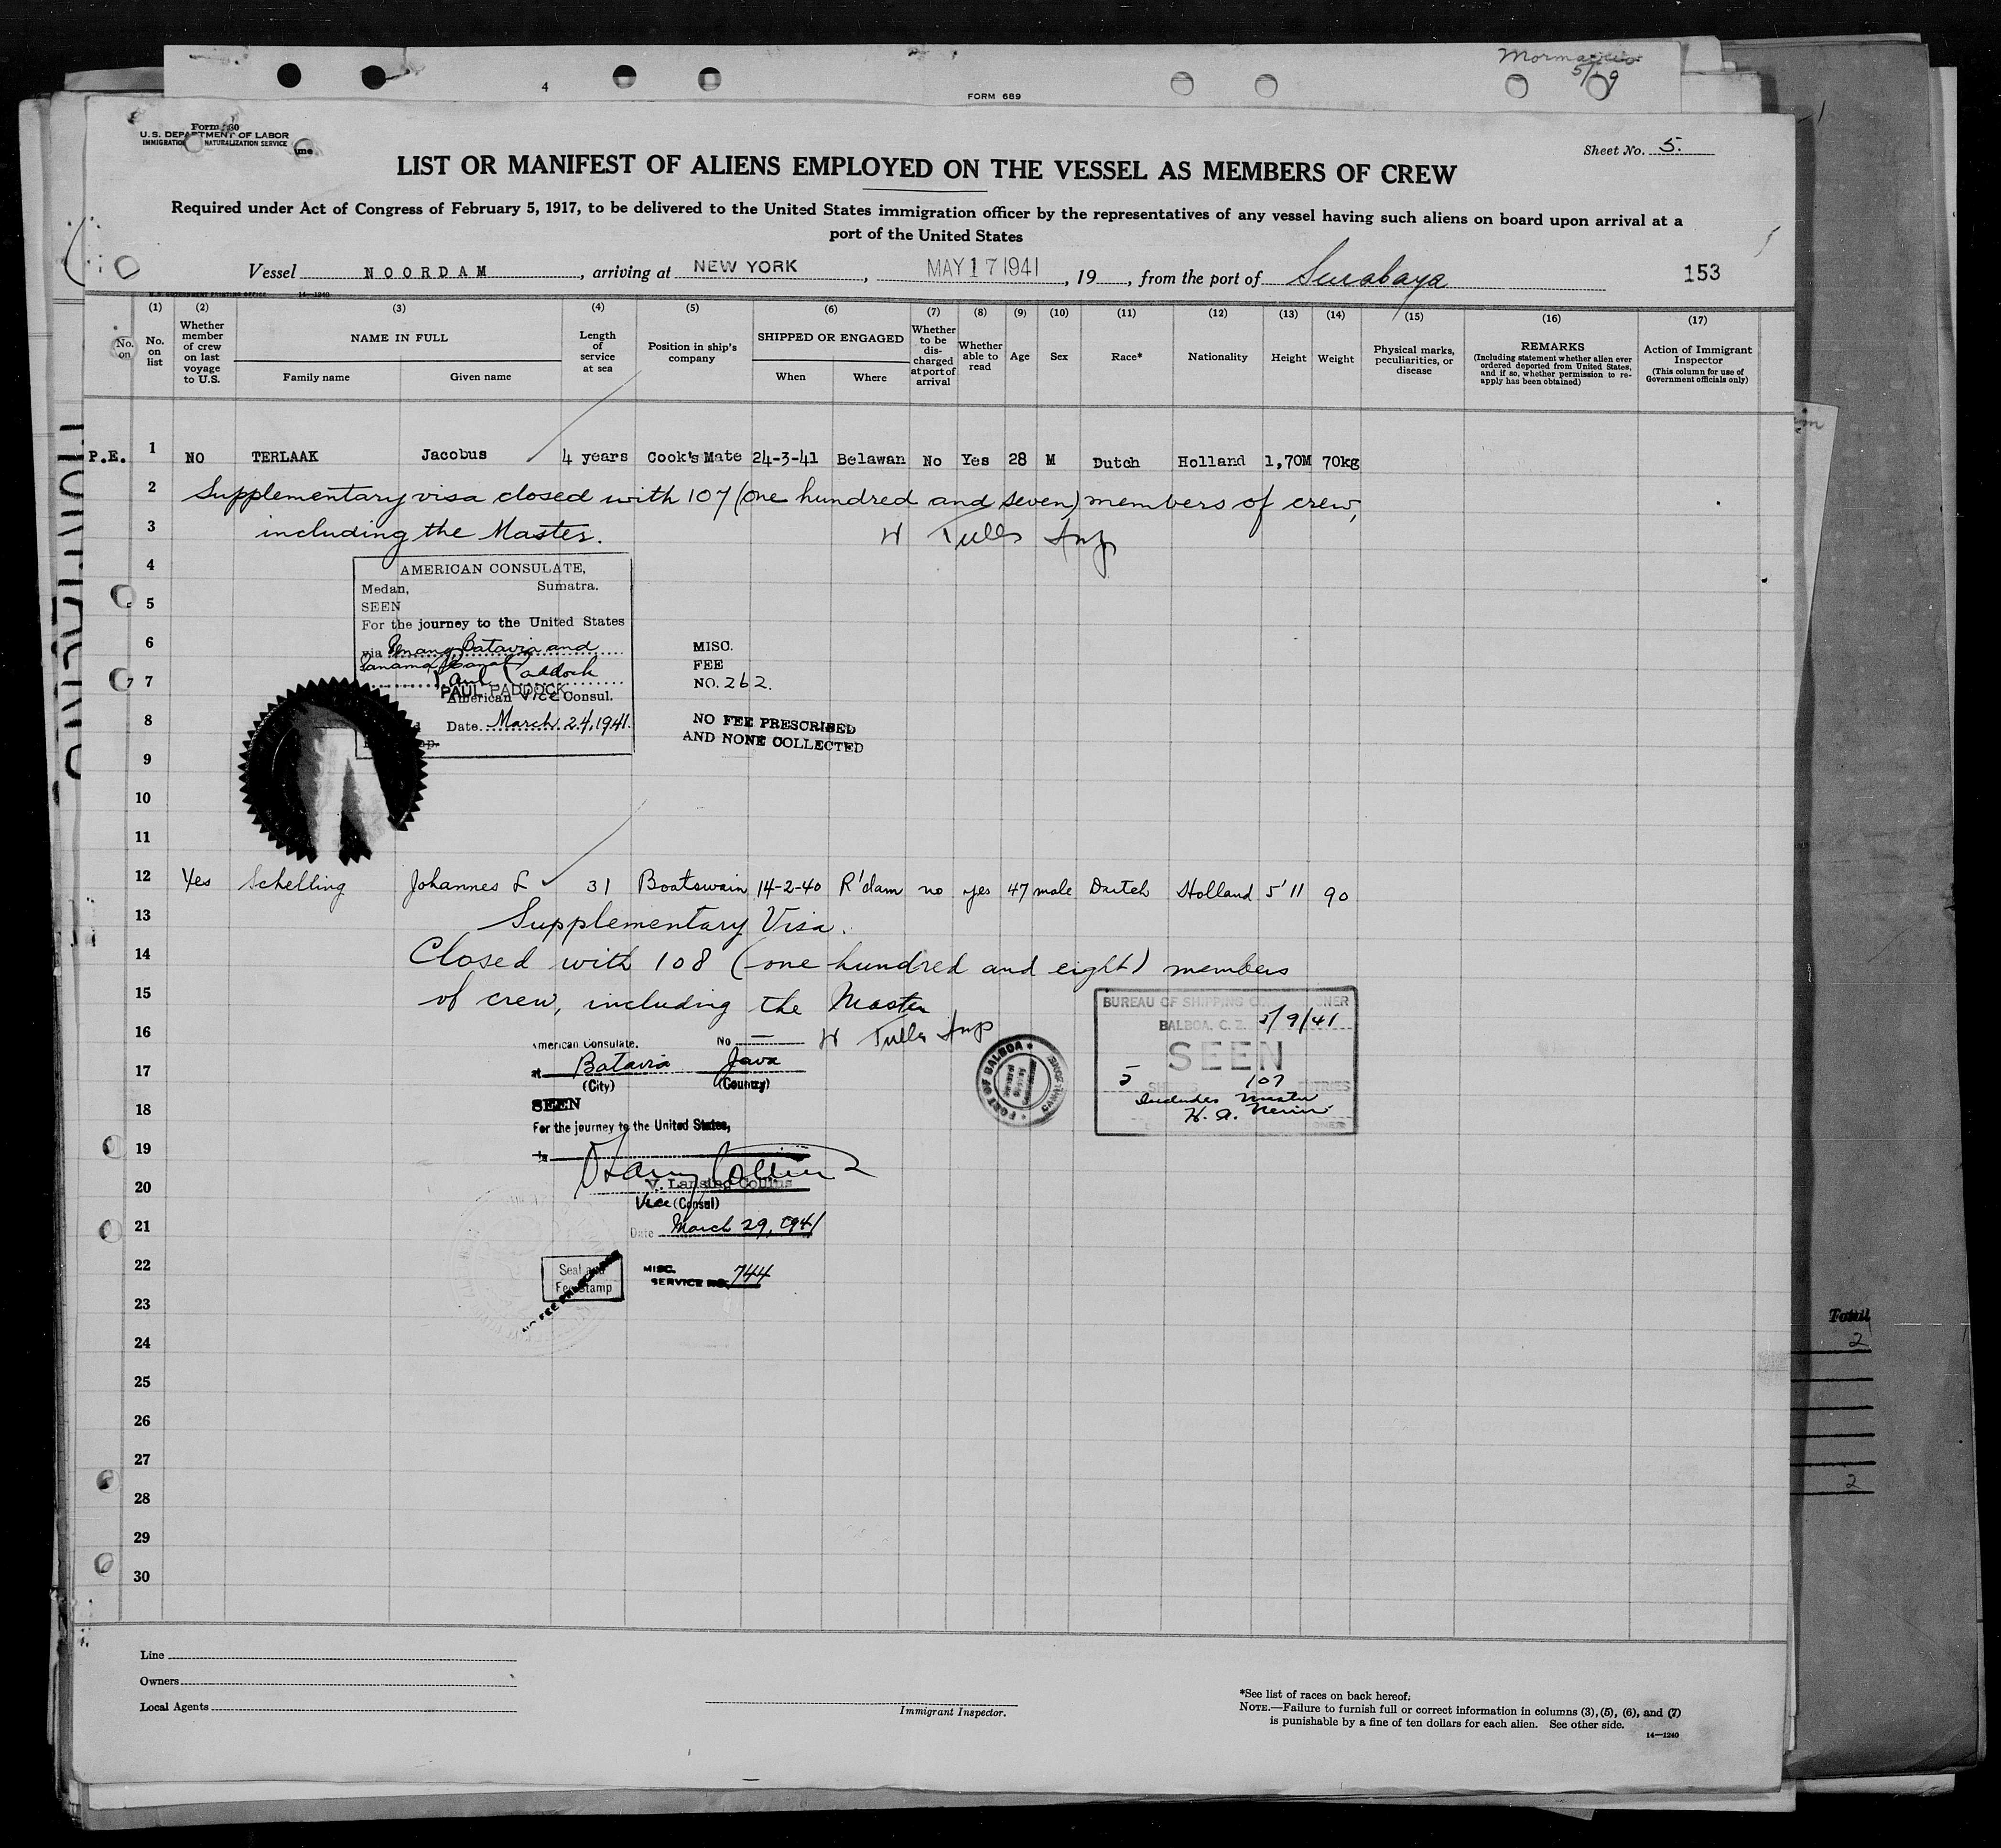 Mormacrio
5/19
4
FORM 689
U.S. DEPARTMENT OF LABOR
IMMIGRATION NATURALIZATION SERVICE
Sheet No. 5.
LIST OR MANIFEST OF ALIENS EMPLOYED ON THE VESSEL AS MEMBERS OF CREW
Required under Act of Congress of February 5, 1917, to be delivered to the United States immigration officer by the representatives of any vessel having such aliens on board upon arrival at a
port of the United States
Vessel NOORDAM, arriving at NEW YORK, MAY 17 1941, 19, from the port of Surabaya
153
(1) (2) (3) (4) (5) (6) (7) (8) (9) (10) (11) (12) (13) (14) (15) (16) (17)
No. on
No. on list
Whether member of crew on last voyage to U.S.
NAME IN FULL
Family name
Given name
Length of service at sea
Position in ship's company
SHIPPED OR ENGAGED
When
Where
Whether to be discharged at port of arrival
Whether able to read
Age
Sex
Race*
Nationality
Height
Weight
Physical marks, peculiarities, or disease
REMARKS
(Including statement whether alien ever ordered deported from United States, and if so, whether permission to reapply has been obtained)
Action of Immigrant Inspector
(This column for use of Government officials only)
P.E. 1 NO TERLAAK Jacobus 4 years Cook's Mate 24-3-41 Belawan No Yes 28 M Dutch Holland 1,70M 70kg
2 Supplementary visa closed with 107 (one hundred and seven) members of crew,
3 including the Master.
4
AMERICAN CONSULATE,
Medan, Sumatra.
5
SEEN
For the journey to the United States
6
via Penang, Batavia and
Panama Canal
MISC.
FEE
NO. 262.
7
Paul Paddock
PAUL PADDOCK
American Vice Consul.
8
Date March 24, 1941.
NO FEE PRESCRIBED
AND NONE COLLECTED
9
10
11
12 Yes Schelling Johannes L 31 Boatswain 14-2-40 R'dam no yes 47 male Dutch Holland 5'11 90
13 Supplementary Visa.
14 Closed with 108 (one hundred and eight) members
15 of crew, including the Master
16
American Consulate. No —
17
at Batavia Java
(City) (Country)
18
SEEN
For the journey to the United States,
19
20
V. Lansing Collins
Vice (Consul)
21
Date March 29, 1941
22
Seal and
Fee Stamp
MISC.
SERVICE NO. 744
BUREAU OF SHIPPING COMMISSIONER
BALBOA, C. Z. 5/9/41
SEEN
5 SHEETS 107 ENTRIES
Includes Master
PORT OF BALBOA
CANAL ZONE
23
24
25
26
27
28
29
30
Total
2
2
Line
Owners
Local Agents
Immigrant Inspector.
*See list of races on back hereof.
NOTE.—Failure to furnish full or correct information in columns (3), (5), (6), and (7)
is punishable by a fine of ten dollars for each alien. See other side.
14—1240